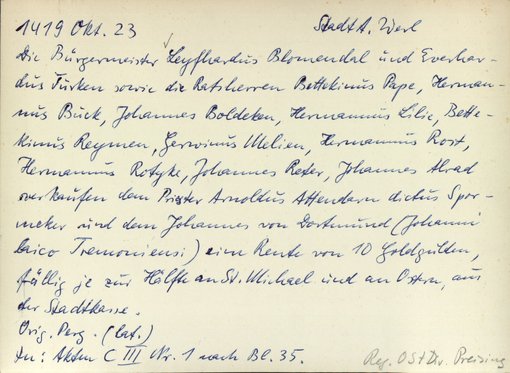 1419 Okt. 23 Stadt A. Werl
Die Bürgermeister Leyfhardus Blomendal und Everhar-
dus Türken sowie die Ratsherren Bettekinus Pape, Herman-
nus Buck, Johannes Boldeken, Hermannus Lilie, Bette-
kinus Reymen, Gerwinus Melien, Hermannus Rost,
Hermannus Rotgke, Johannes Reter, Johannes Alrad
verkaufen dem Priester Arnoldus Attendarn dictus Spor-
meker und dem Johannes von Dortmund (Johanni
laico Tremoniensi) eine Rente von 10 Goldgulden,
fällig je zur Hälfte an St. Michael und an Ostern, aus
der Stadtkasse.
Orig. Perg. (lat.)
In: Akten C III Nr. 1 nach Bl. 35.
Reg. OStDr. Preising